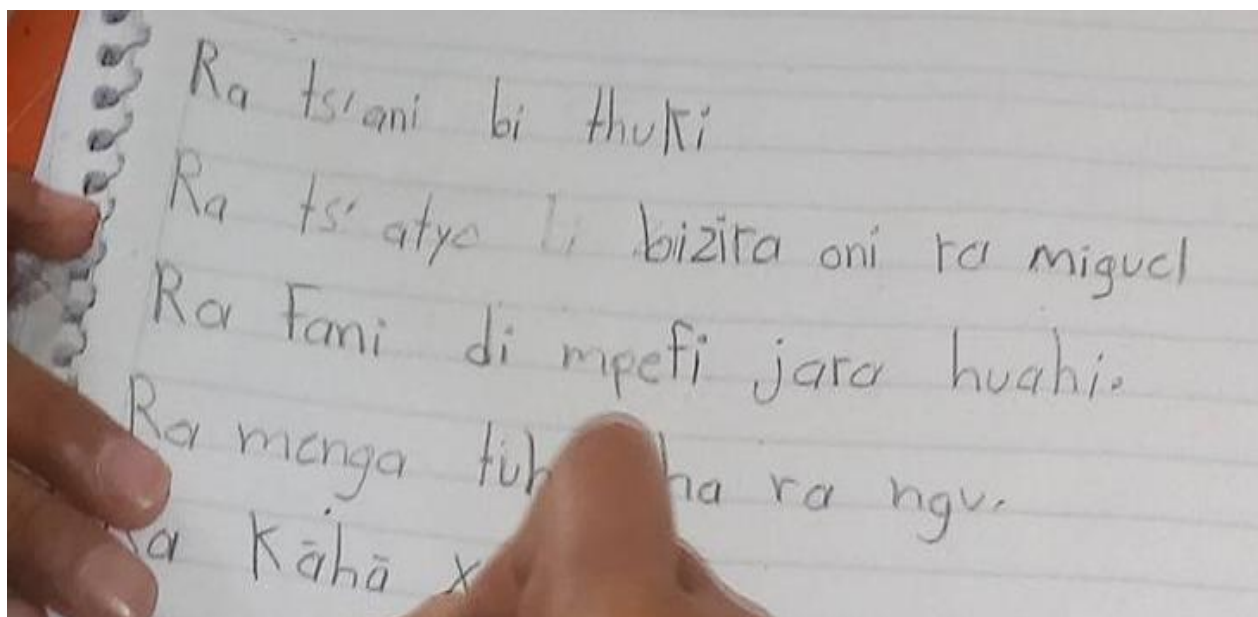 Ra ts'ani bi thuki
Ra ts'atyo bizira oni ra miguel
Ra Fani di mpefi jara huahi.
Ra menga ra ngu.
Kāhā